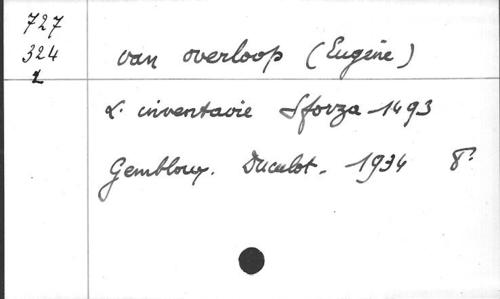 727
324
2
van overloop (Eugène)
L'inventaire Sforza 1493
Gembloux. Duculot. 1934 8°